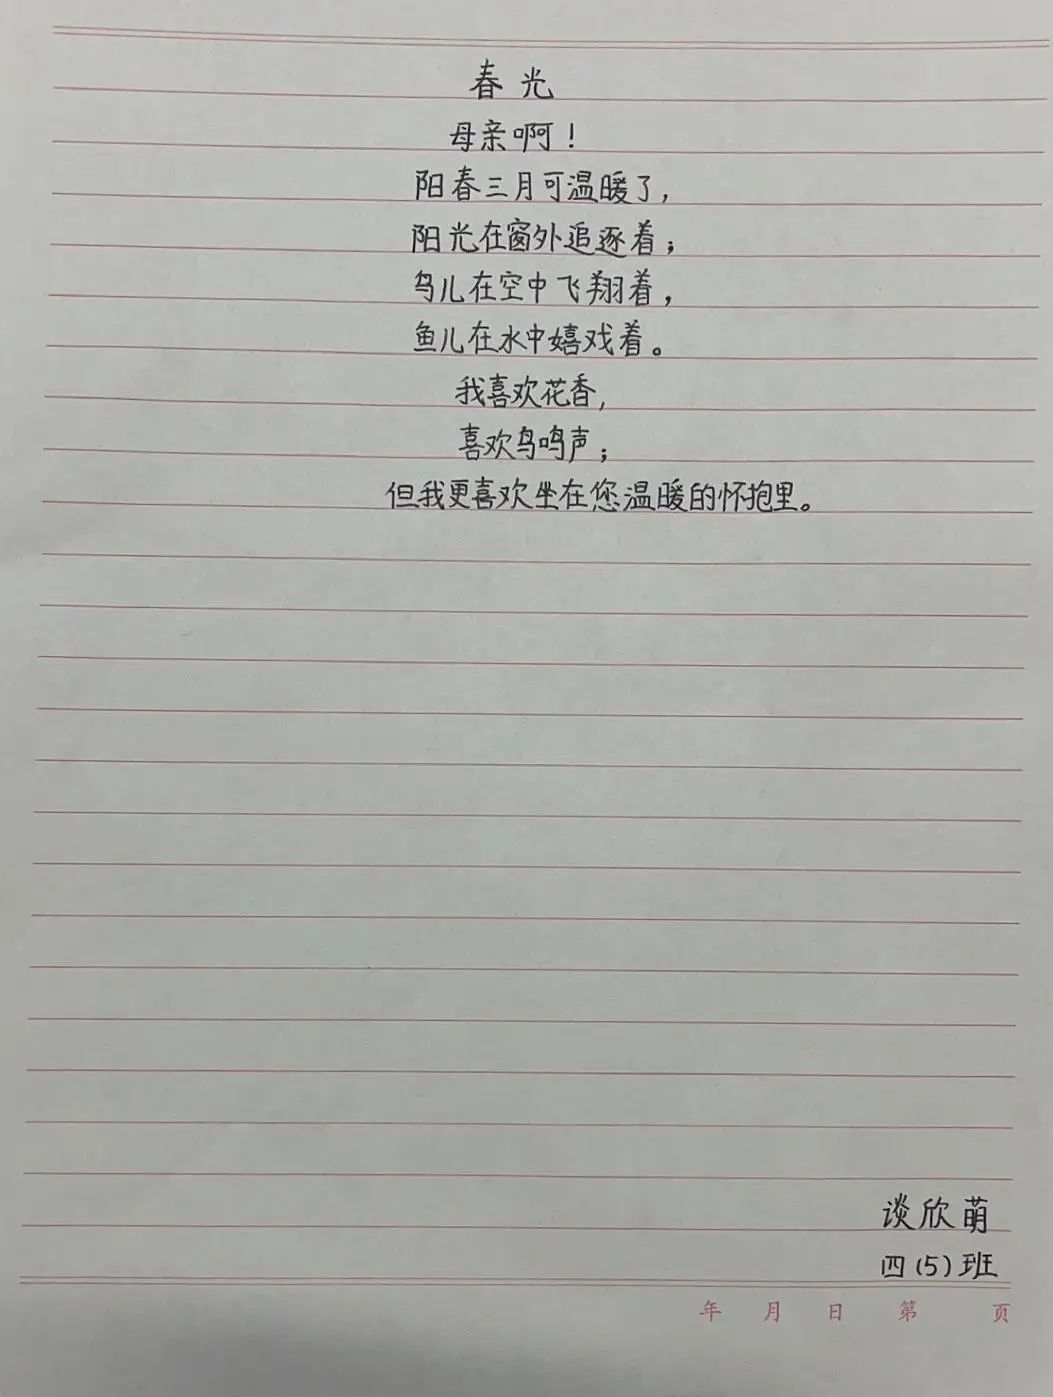 春光
母亲啊！
阳春三月可温暖了，
阳光在窗外追逐着；
鸟儿在空中飞翔着，
鱼儿在水中嬉戏着。
我喜欢花香，
喜欢鸟鸣声；
但我更喜欢坐在您温暖的怀抱里。
谈欣萌
四（5）班
年 月 日 第 页